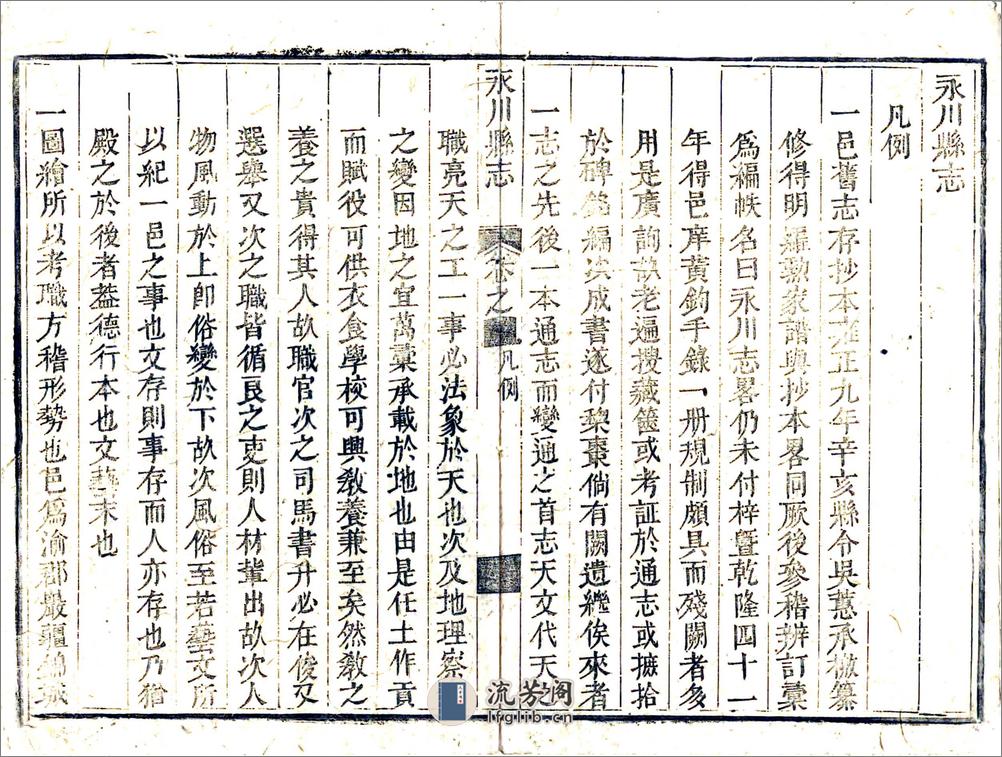 永川縣志
凡例
一邑舊志存抄本雍正九年辛亥縣令吳蕙承檄纂
修得明羅勳家譜與抄本畧同厥後參稽辨訂彙
爲編帙名曰永川志畧仍未付梓暨乾隆四十一
年得邑庠黃鈞手錄一册規制頗具而殘闕者多
用是廣詢故老遍搜藏篋或考証於通志或摭拾
於碑銘編次成書遂付棃棗倘有闕遺繼俟來者
一志之先後一本通志而變通之首志天文代天
永川縣志
卷之
凡例
職亮天之工一事必法象於天也次及地理察
之變因地之宜萬彙承載於地也由是任土作貢
而賦役可供衣食學校可興敎養兼至矣然敎之
養之貴得其人故職官次之司馬書升必在俊乂
選舉又次之職皆循良之吏則人材輩出故次人
物風動於上卽俗變於下故次風俗至若藝文所
以紀一邑之事也文存則事存而人亦存也乃猶
殿之於後者蓋德行本也文藝末也
一圖繪所以考職方稽形勢也邑爲渝郡嚴疆錦城
流芳阁
lfglib.cn